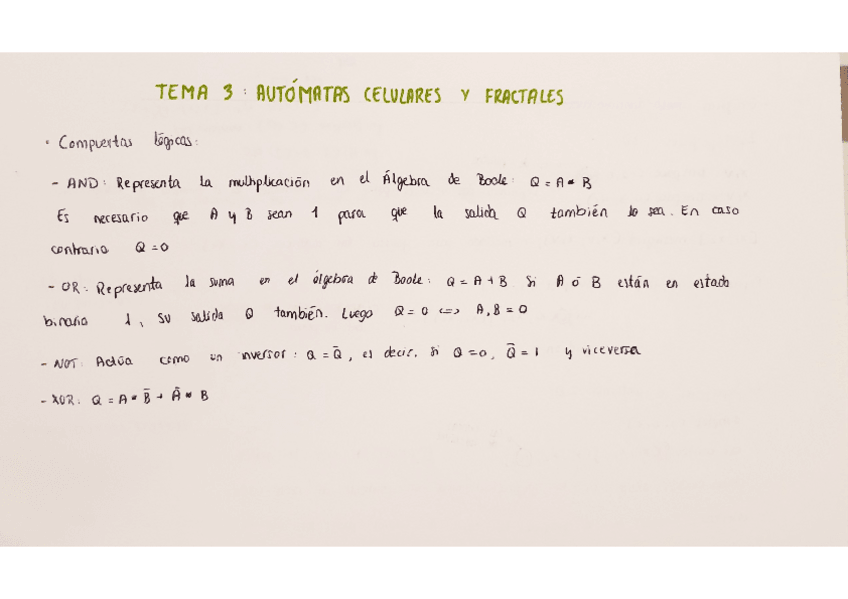 TEMA 3: AUTÓMATAS CELULARES Y FRACTALES
· Compuertas lógicas:
- AND: Representa la multiplicación en el Álgebra de Boole: Q = A * B
Es necesario que A y B sean 1 para que la salida Q también lo sea. En caso
contrario Q = 0
- OR: Representa la suma en el álgebra de Boole: Q = A + B. Si A ó B están en estado
binario 1, su salida Q también. Luego Q = 0 <=> A, B = 0
- NOT: Actúa como un inversor: Q = Q̄, es decir, si Q = 0, Q̄ = 1 y viceversa
- XOR: Q = A * B̄ + Ā * B